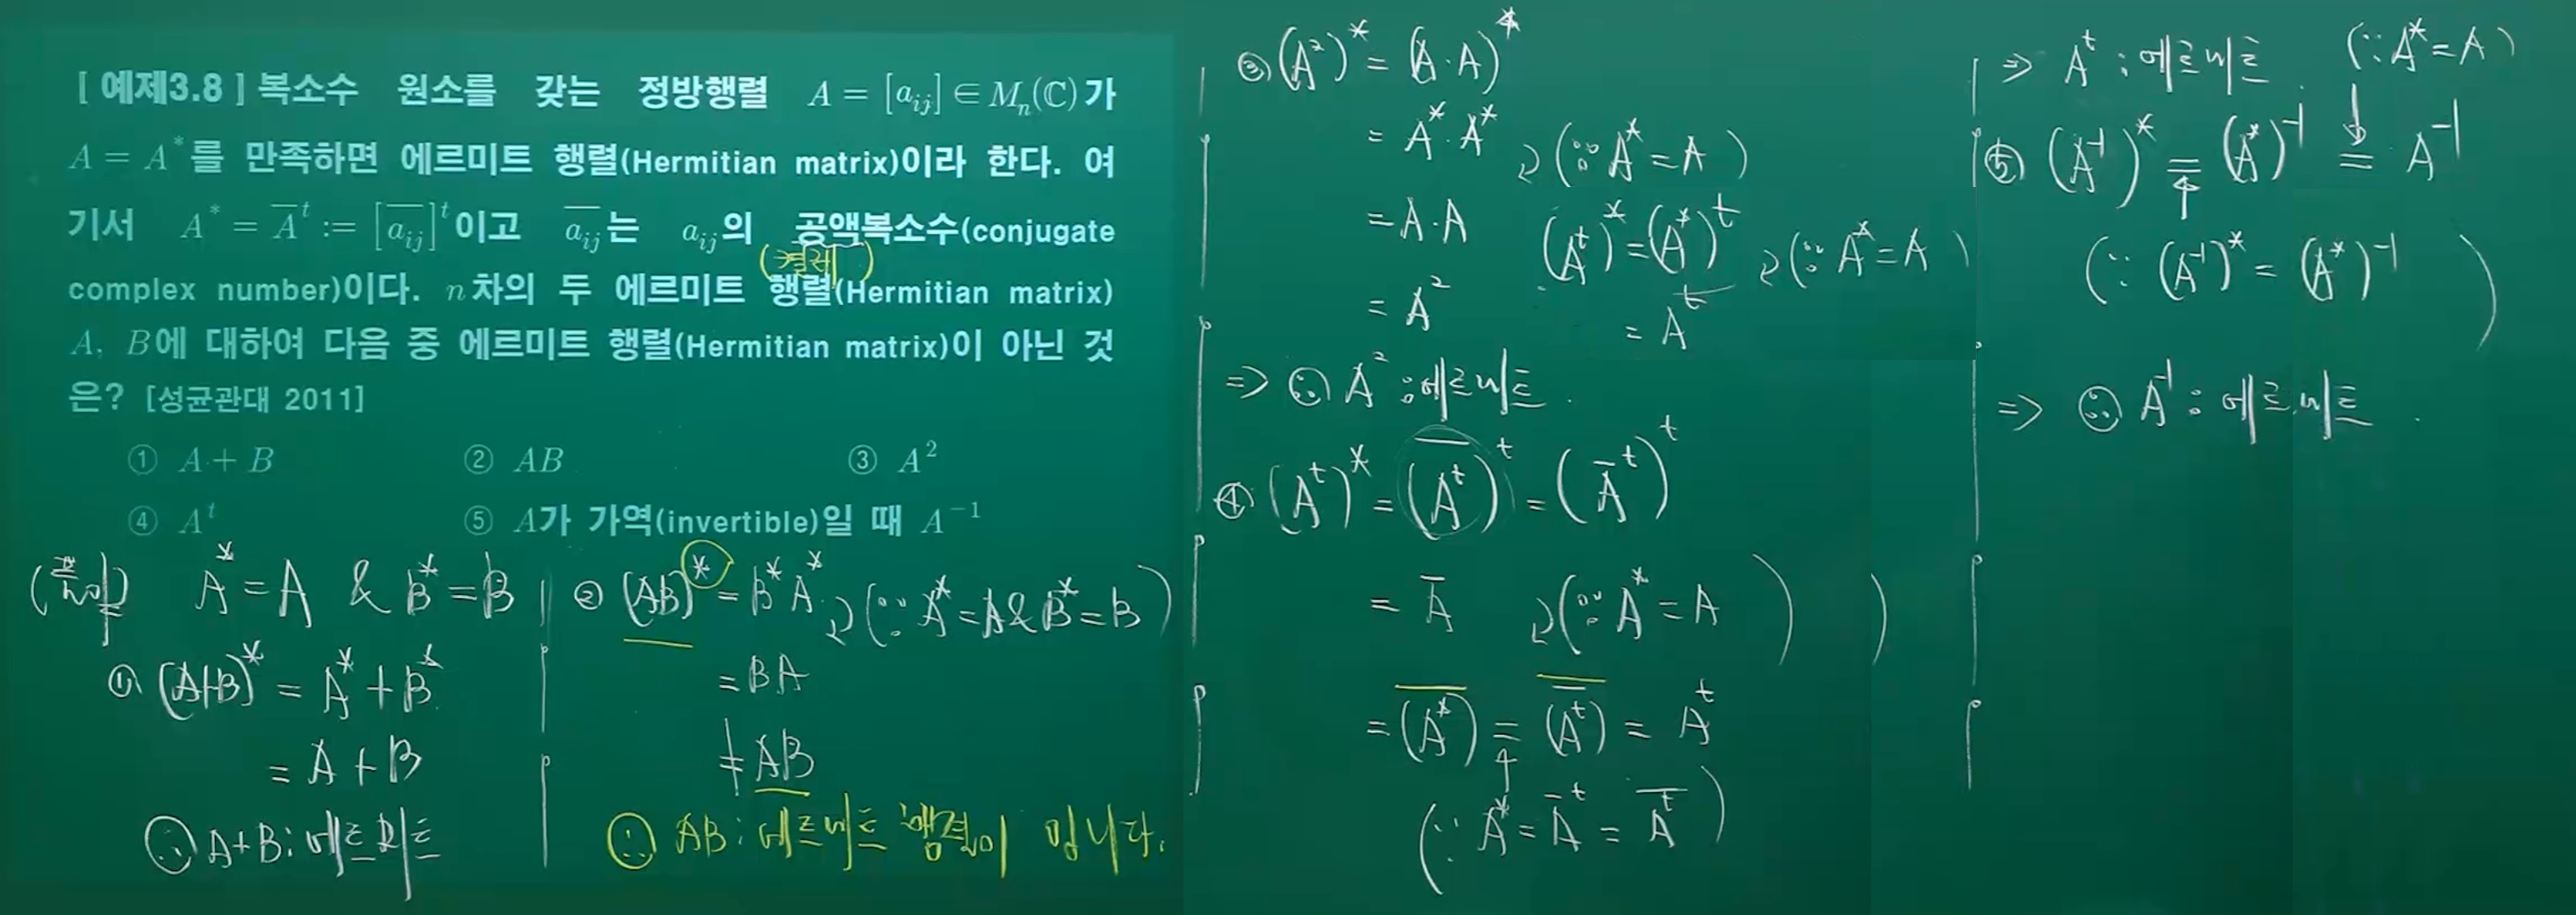 [ 예제3.8 ] 복소수 원소를 갖는 정방행렬 A = [a_{ij}] ∈ M_n(ℂ)가
A = A^*를 만족하면 에르미트 행렬(Hermitian matrix)이라 한다. 여
기서 A^* = \overline{A}^t := [\overline{a_{ij}}]^t이고 \overline{a_{ij}}는 a_{ij}의 공액복소수(conjugate
(켤레)
complex number)이다. n차의 두 에르미트 행렬(Hermitian matrix)
A, B에 대하여 다음 중 에르미트 행렬(Hermitian matrix)이 아닌 것
은? [성균관대 2011]
① A + B ② AB ③ A^2
④ A^t ⑤ A가 가역(invertible)일 때 A^{-1}
(풀이) A^* = A & B^* = B
① (A+B)^* = A^* + B^*
= A + B
∴ A+B : 에르미트
② (AB)^* = B^* A^*
(∵ A^* = A & B^* = B)
= BA
≠ AB
∴ AB : 에르미트 행렬이 아닙니다.
③ (A^2)^* = (A·A)^*
= A^*·A^*
(∵ A^* = A)
= A·A
= A^2
(A^t)^* = (A^*)^t
(∵ A^* = A)
= A^t
⇒ ∴ A^2 : 에르미트.
④ (A^t)^* = (\overline{A^t})^t = (\overline{A}^t)^t
= \overline{A}
(∵ A^* = A)
= \overline{(A^*)} = \overline{(\overline{A^t})} = A^t
(∵ A^* = \overline{A}^t = \overline{A^t})
⇒ A^t : 에르미트
(∵ A^* = A)
⑤ (A^{-1})^* = (A^*)^{-1} = A^{-1}
(∵ (A^{-1})^* = (A^*)^{-1})
⇒ ∴ A^{-1} : 에르미트.